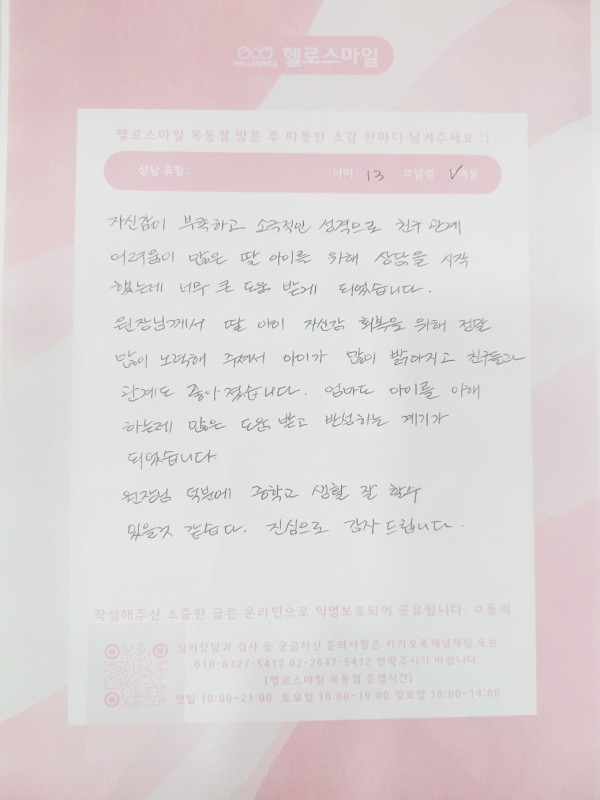 HELLOSMILE 헬로스마일
헬로스마일 목동점 방문 후 따뜻한 소감 한마디 남겨주세요 :)
상담 유형 : 나이 : 13 □남성 ✓여성
자신감이 부족하고 소극적인 성격으로 친구 관계
어려움이 많은 딸 아이를 위해 상담을 시작
했는데 너무 큰 도움 받게 되었습니다.
원장님께서 딸 아이 자신감 회복을 위해 정말
많이 노력해 주셔서 아이가 많이 밝아지고 친구들과
관계도 좋아졌습니다. 엄마도 아이를 이해
하는데 많은 도움 받고 반성하는 계기가
되었습니다.
원장님 덕분에 중학교 생활 잘 할수
있을것 같습니다. 진심으로 감사 드립니다.
작성해주신 소중한 글은 온라인으로 익명보호되어 공유됩니다. □동의
심리상담과 검사 등 궁금하신 문의사항은 카카오톡채널채팅 또는
010-8327-5412 02-2647-5412 연락주시기 바랍니다.
[헬로스마일 목동점 운영시간]
평일 10:00~21:00 토요일 10:00~19:00 일요일 10:00~14:00